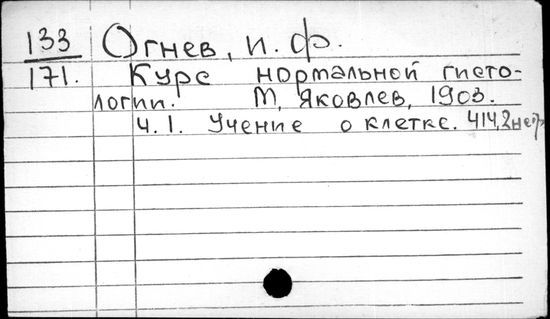 133 Огнев, И. Ф.
171. Курс нормальной гисто-
логии. М, Яковлев, 1903.
Ч. 1. Учение о клетке. 414, 2 не